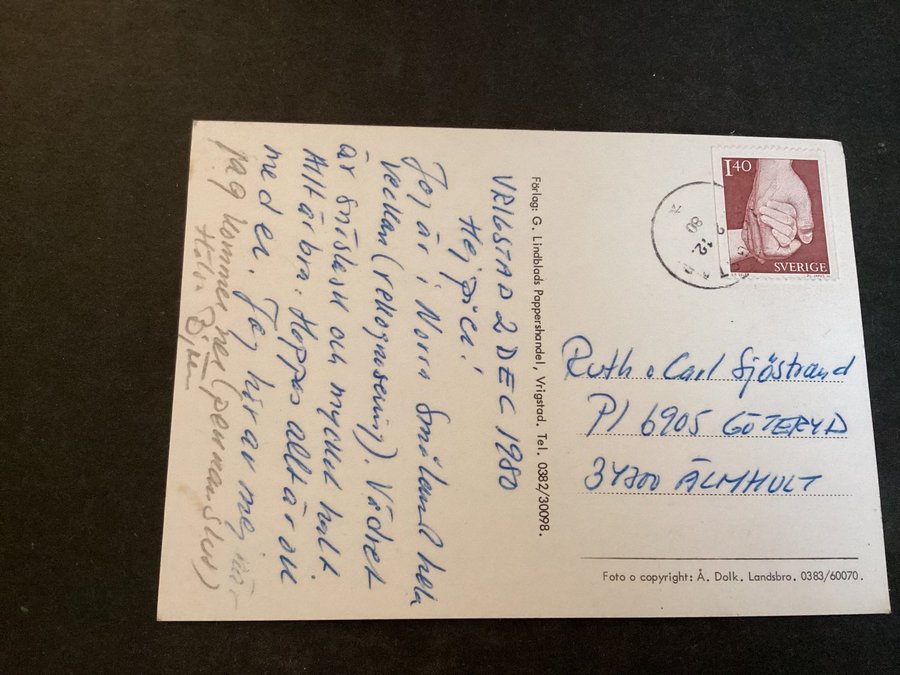 VRIGSTAD 2 DEC 1980
Hej på er!
Jag är i Norra Småland hela
veckan (rekognosering). Vädret
är snöslask och mycket halt.
Allt är bra. Hoppas allt är ok
med er. Jag hör av mig när
jag kommer hem (pennan slut)
Häls. Björn
Förlag: G. Lindblads Pappershandel, Vrigstad. Tel. 0382/30098.
1.40
SVERIGE
Ruth o Carl Sjöstrand
Pl 6905 GÖTERYD
34300 ÄLMHULT
Foto o copyright: Å. Dolk. Landsbro. 0383/60070.